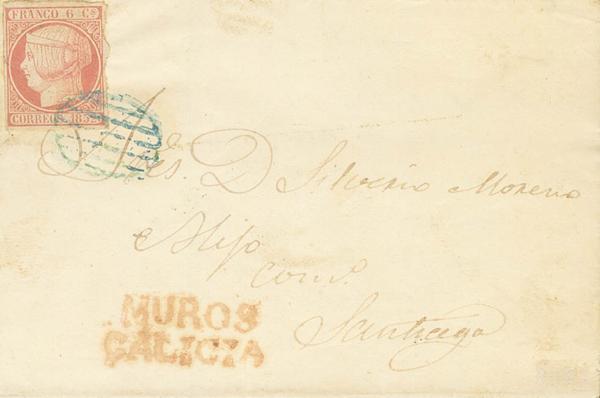 FRANCO 6 Cs
CORREOS 1852
Sres. D Silverio Moreno
é Hijo
com.
Santiago
MUROS
GALICIA